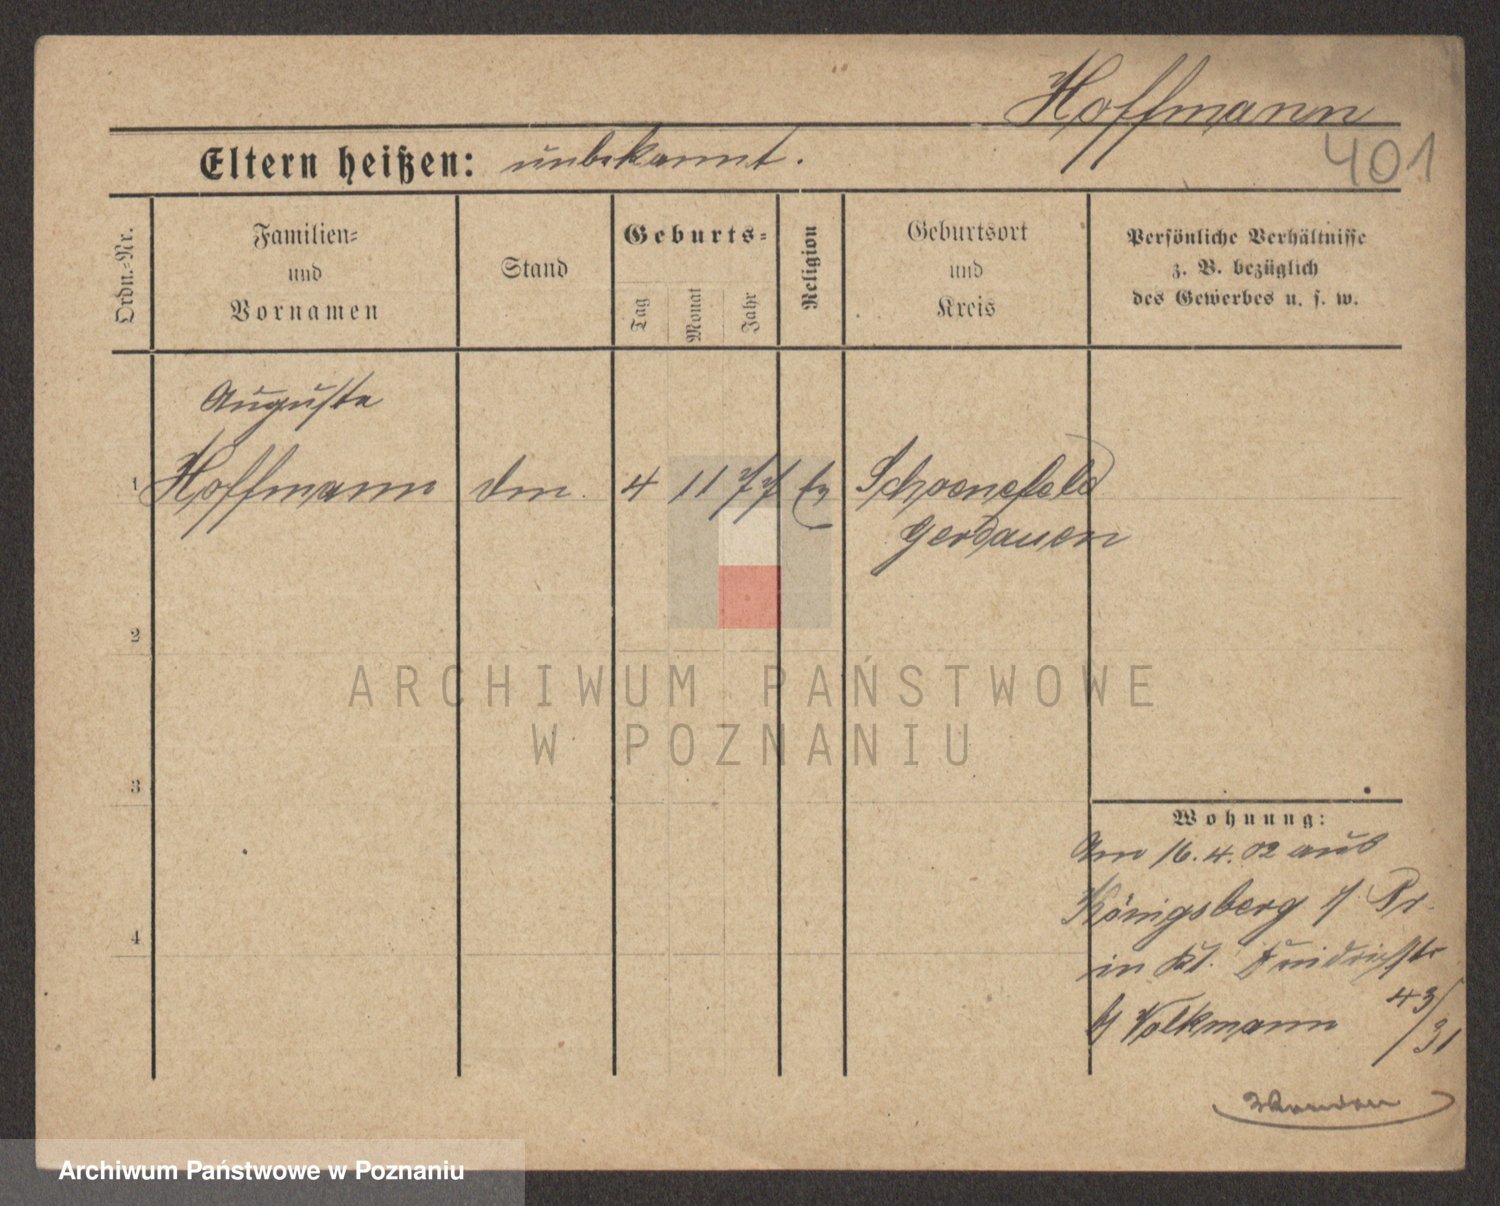 Hoffmann
401
Eltern heißen: unbekannt.
Ordn.-Nr.
Familien-
und
Vornamen
Stand
Geburts-
Tag
Monat
Jahr
Religion
Geburtsort
und
Kreis
Persönliche Verhältnisse
z. B. bezüglich
des Gewerbes u. s. w.
Auguste
1 Hoffmann 4 11 77 Schoenefeld
Gerdauen
2
3
4
Wohnung:
Am 16.4.02 aus
Königsberg Pr.
in
Volkmann 43/31
ARCHIWUM PAŃSTWOWE
W POZNANIU
Archiwum Państwowe w Poznaniu